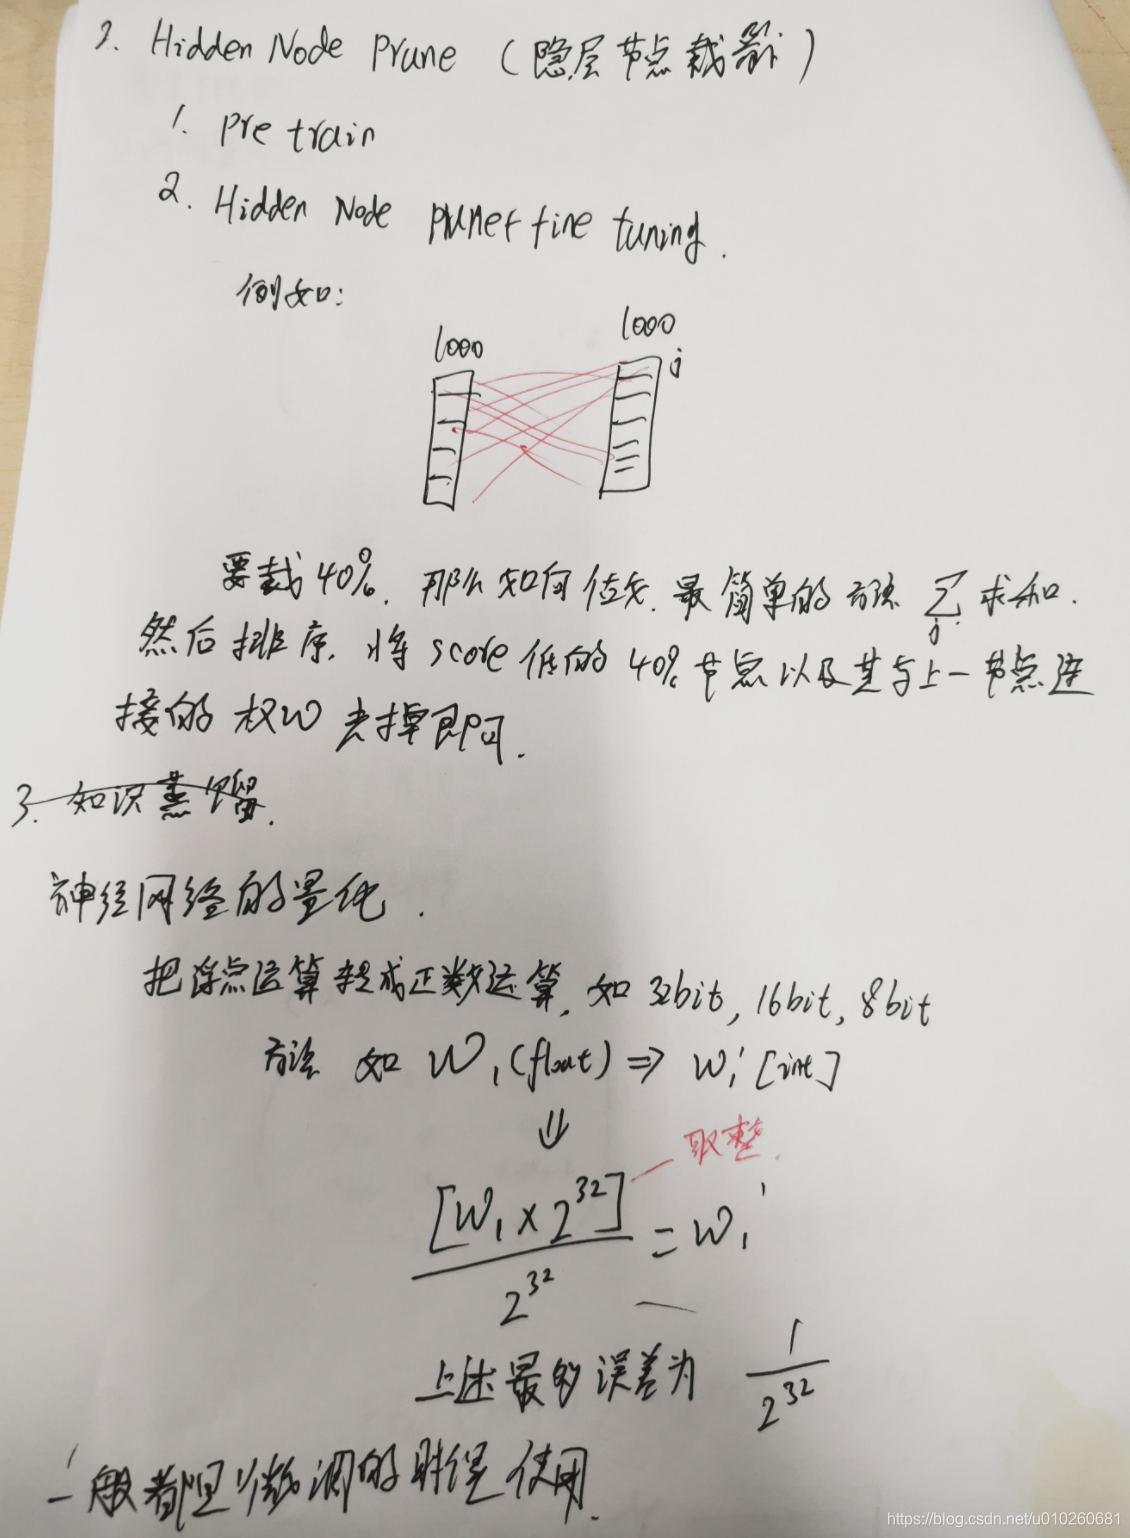 2. Hidden Node Prune (隐层节点裁剪)
1. Pre train
2. Hidden Node prune+ fine tuning.
例如:
1000
1000
j
要裁40%. 那么如何做. 最简单的方法 ∑j 求和.
然后排序. 将score低的40%节点以及其与上一节点连
接的权W去掉即可.
3. 知识蒸馏.
神经网络的量化.
把浮点运算转成正数运算, 如32bit, 16bit, 8bit
方法 如 W₁(float) ⇒ W₁' [int]
⇓
取整.
[W₁×2³²]/2³² = W₁'
上述最多误差为 1/2³²
一般都是微调的时候使用.
https://blog.csdn.net/u010260681